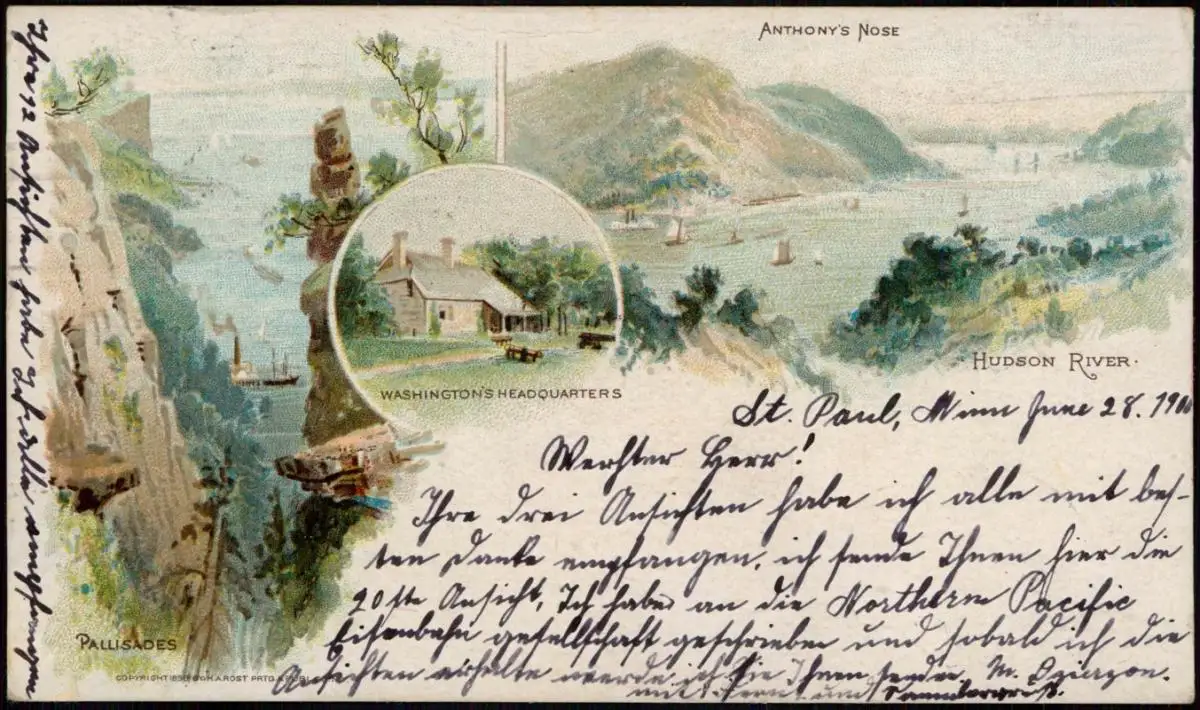 ANTHONY'S NOSE
HUDSON RIVER.
WASHINGTON'S HEADQUARTERS
PALLISADES
COPYRIGHT BY H.A. ROST PRTG.
St. Paul, Minn June 28. 1900
Werther Herr!
Ihre drei Ansichten habe ich alle mit bes-
ten Danke empfangen, ich sende Ihnen hier die
20ste Ansicht, Ich habe an die Northern Pacific
Eisenbahn gesellschaft geschrieben und sobald ich die
Ansichten erhalte werde ich sie Ihnen senden. M. Dziarzon.
mit und Sammlergruß.
Ihre 12 Ansichten habe empfangen